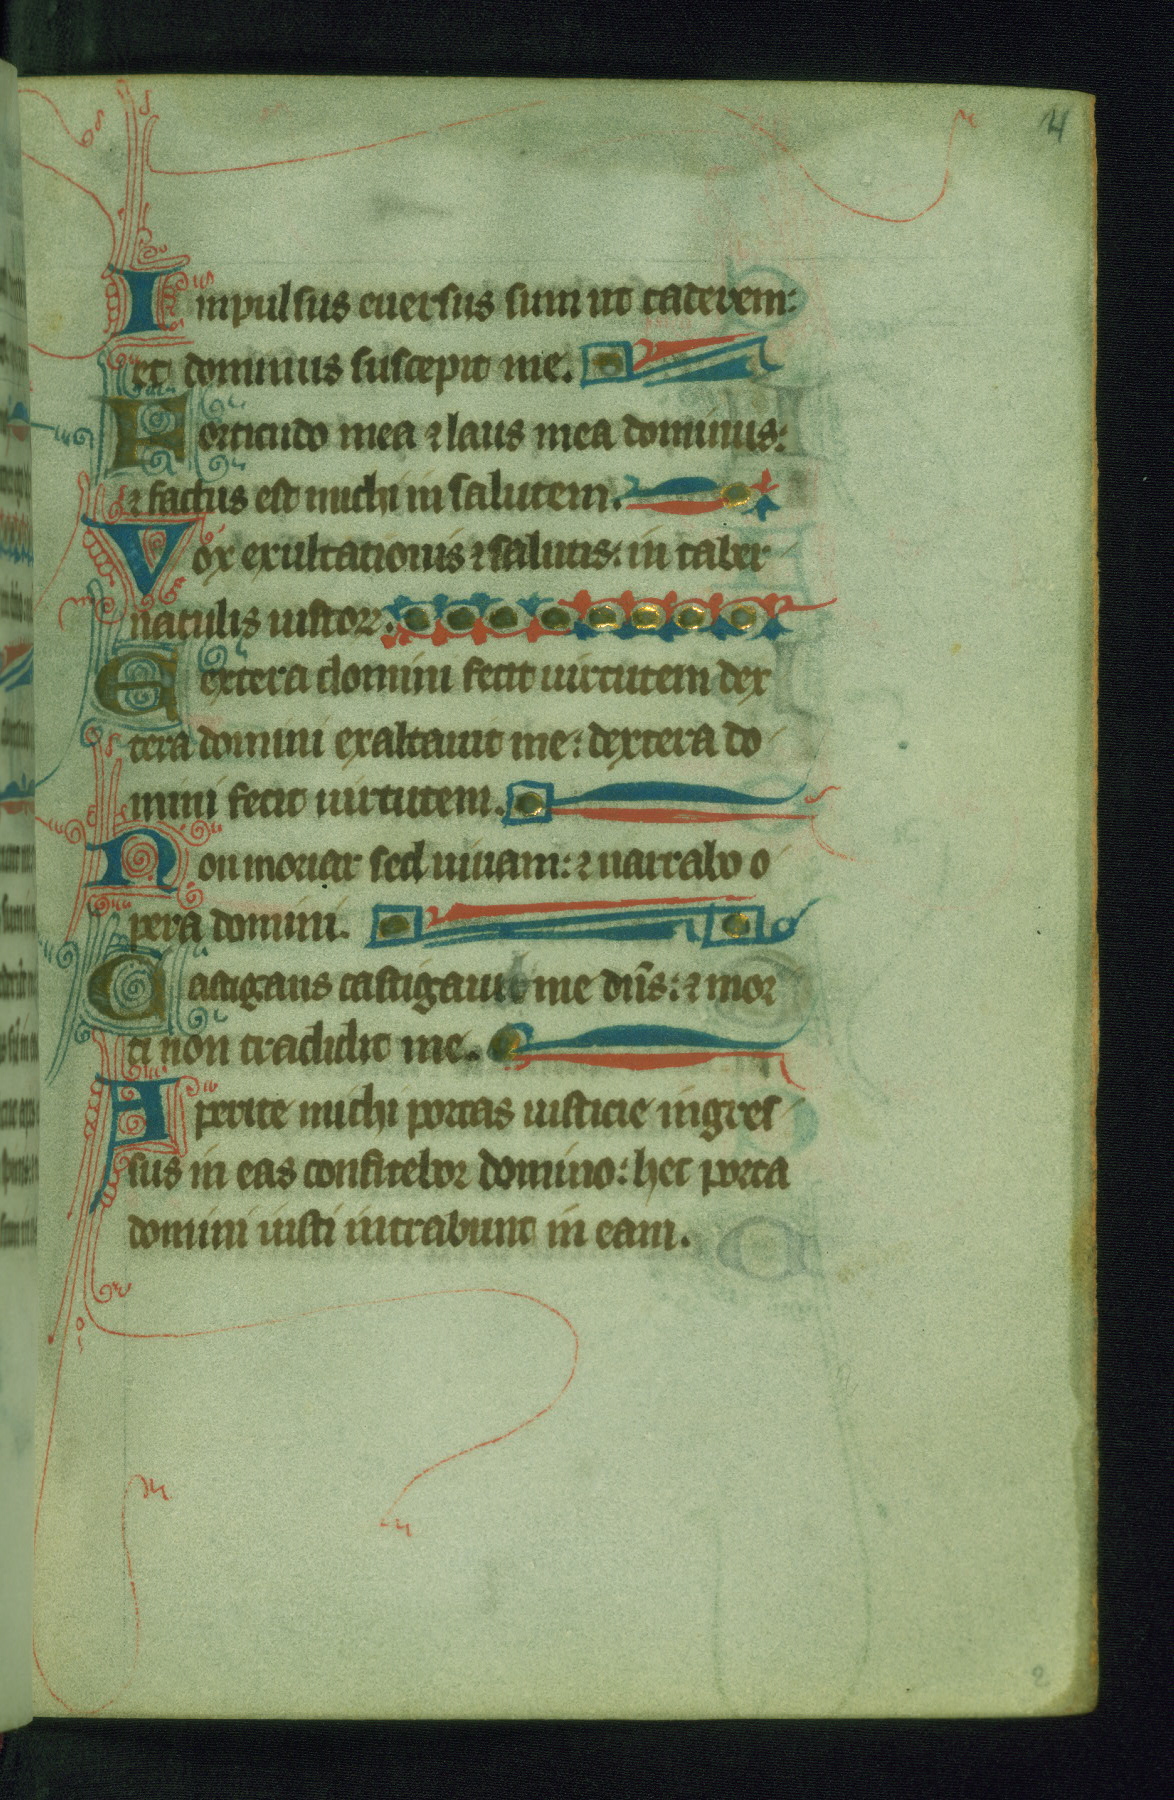 4
Impulsus euersus sum ut caderem:
et dominus suscepit me.
Fortitudo mea ⁊ laus mea dominus:
⁊ factus est michi in salutem.
Vox exultationis ⁊ salutis: in taber
naculis iustoꝝ.
Dextera domini fecit uirtutem dex
tera domini exaltauit me: dextera do
mini fecit uirtutem.
Non moriar sed uiuam: ⁊ narrabo o
pera domini.
Castigans castigauit me dñs: ⁊ mor
ti non tradidit me.
Aperite michi portas iusticie ingres
sus in eas confitebor domino: hec porta
domini iusti intrabunt in eam.
2